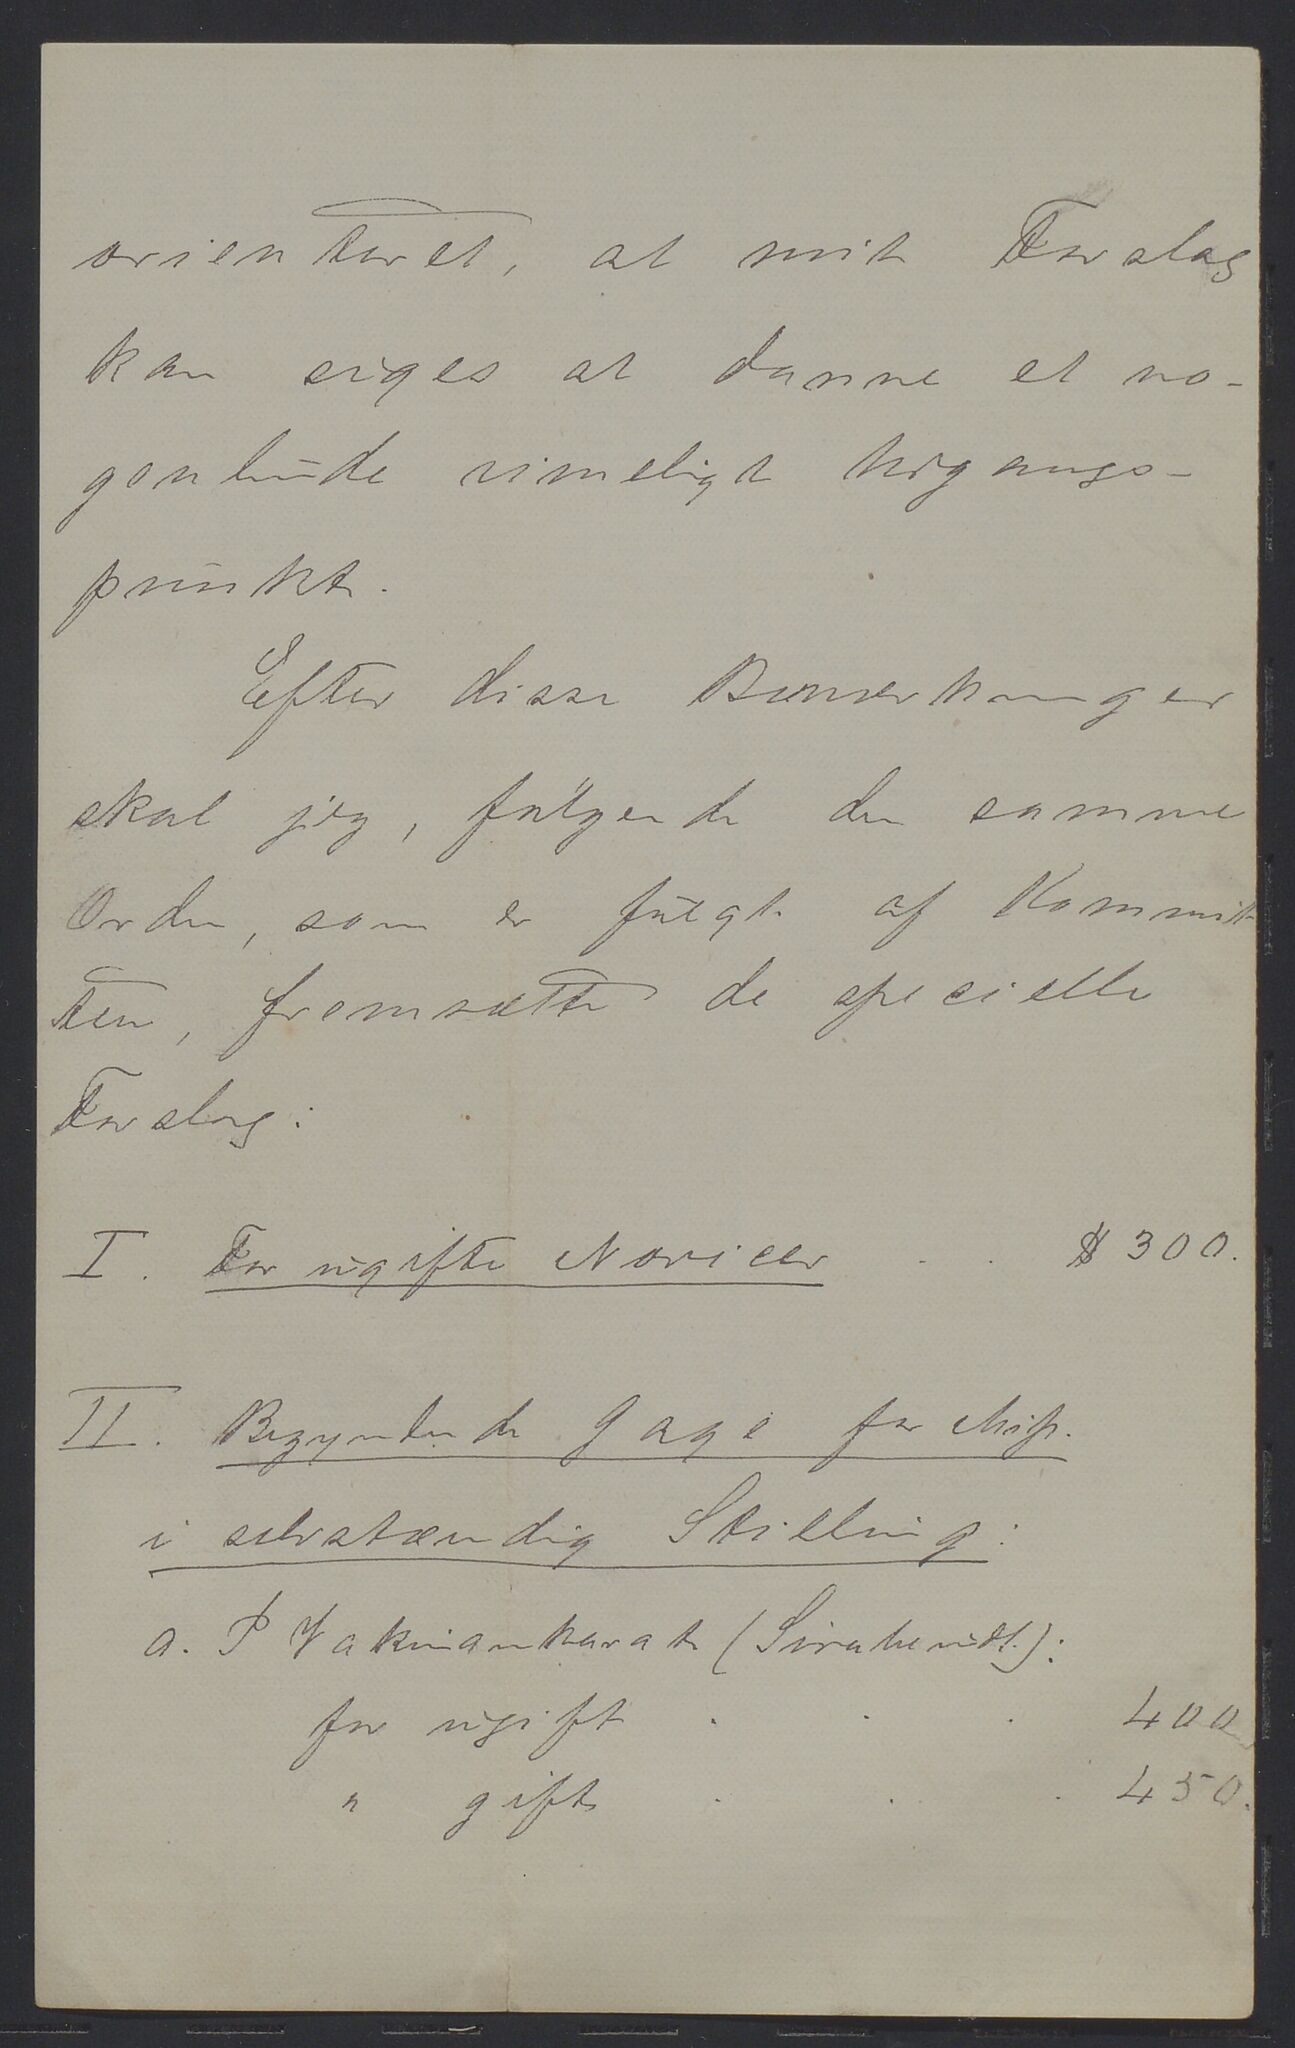 orienteret, at mit Forslag
kan siges at danne et no-
genlunde rimeligt Udgangs-
punkt.
Efter disse Bemærkninger
skal jeg, følgende den samme
Orden, som er fulgt af Kommit-
teen, fremsætte de specielle
Forslag:
I. For ugifte Novicer . . $ 300.
II. Begyndende Gage for Miss.
i selvstændig Stilling:
a. I Vakinankarat (Sirabeudt.):
for ugift . . . 400
" gift . . . 450.